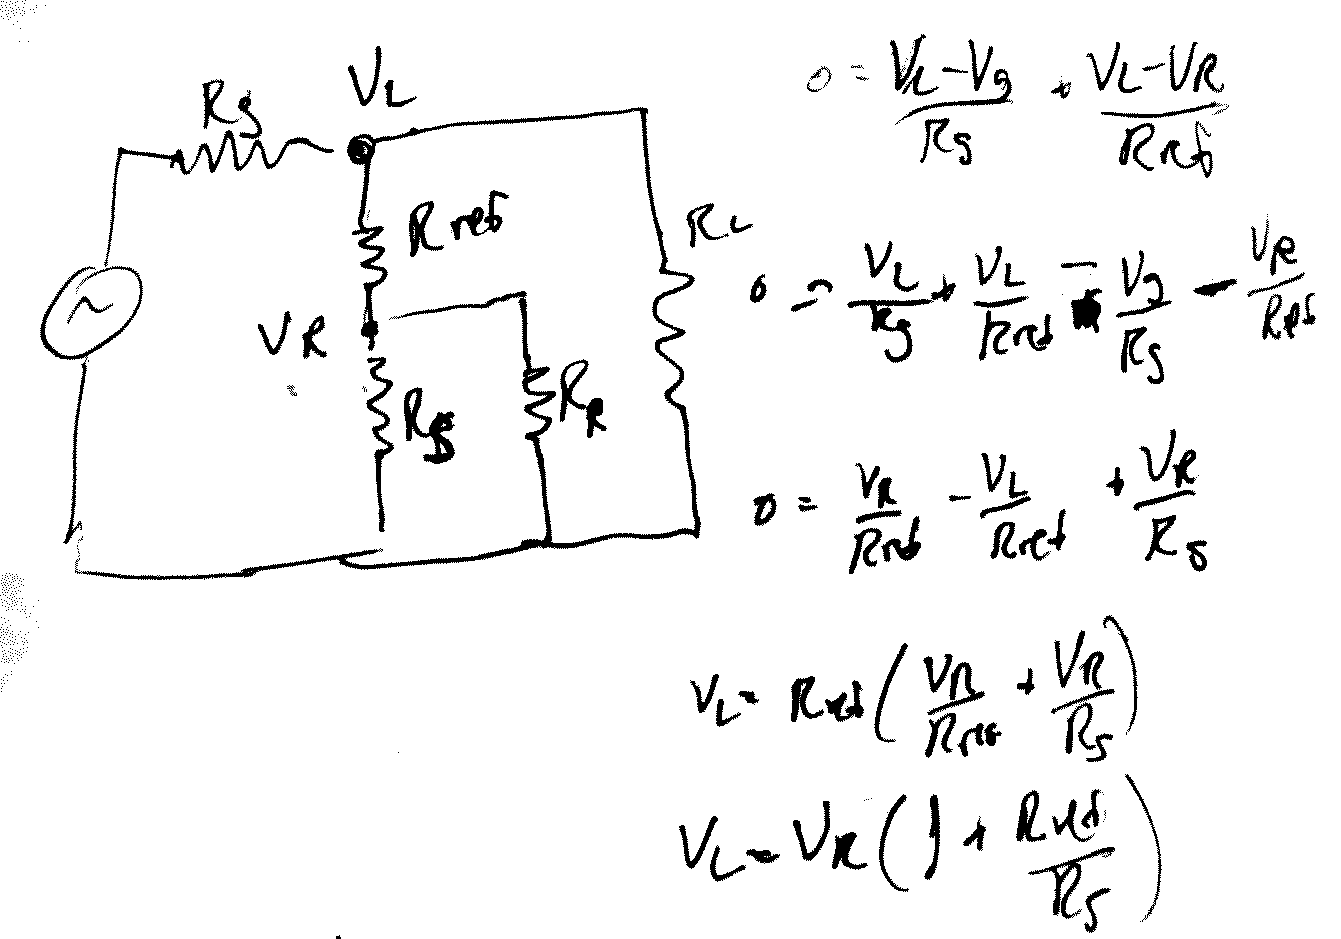 Rg
VL
Rref
RL
VR
RR
0 = (VL - Vg)/Rg + (VL - VR)/Rref
0 = VL/Rg + VL/Rref - Vg/Rg - VR/Rref
0 = VR/Rref - VL/Rref + VR/Rs
VL = Rref ( VR/Rref + VR/Rs )
VL = VR ( 1 + Rref/Rs )